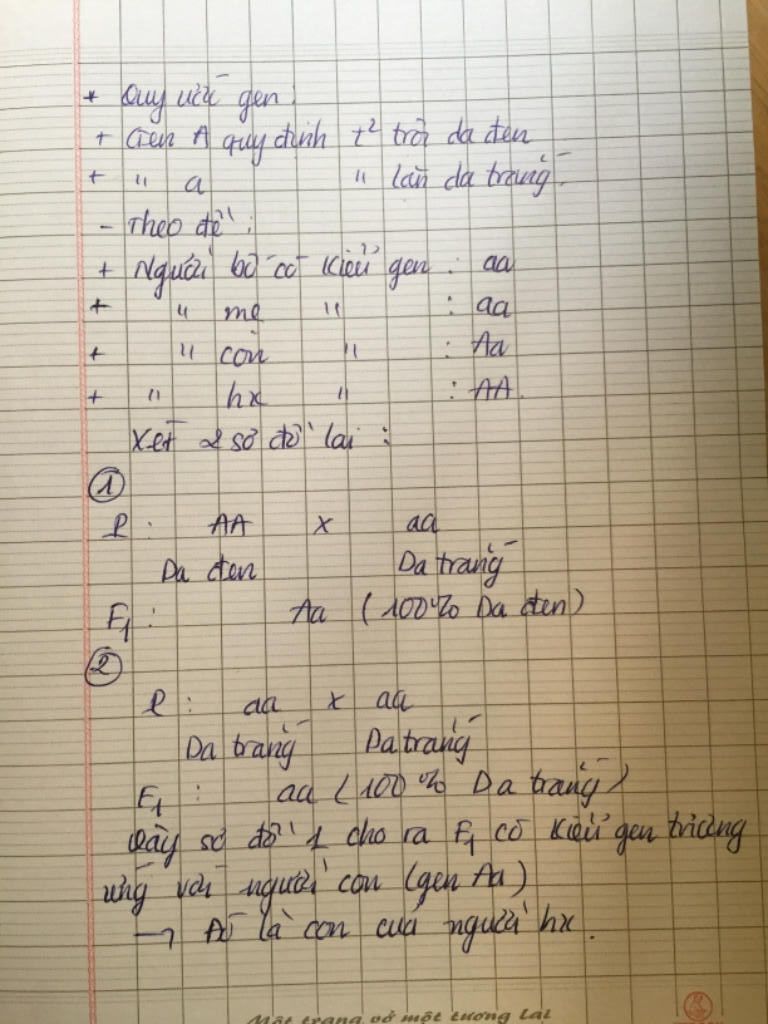 * Quy ước gen:
+ Gen A quy định t² trội da đen
+ " a " lặn da trắng.
- Theo đề:
+ Người bố có kiểu gen : aa
+ " mẹ " : aa
+ " con " : Aa
+ " hx " : AA.
Xét 2 sơ đồ lai :
①
P : AA x aa
Da đen Da trắng
F₁ : Aa (100% Da đen)
②
P : aa x aa
Da trắng Da trắng
F₁ : aa (100% Da trắng)
Vậy sơ đồ 1 cho ra F₁ có kiểu gen tương
ứng với người con (gen Aa)
→ Nó là con của người hx.
Một trang vở một tương lai